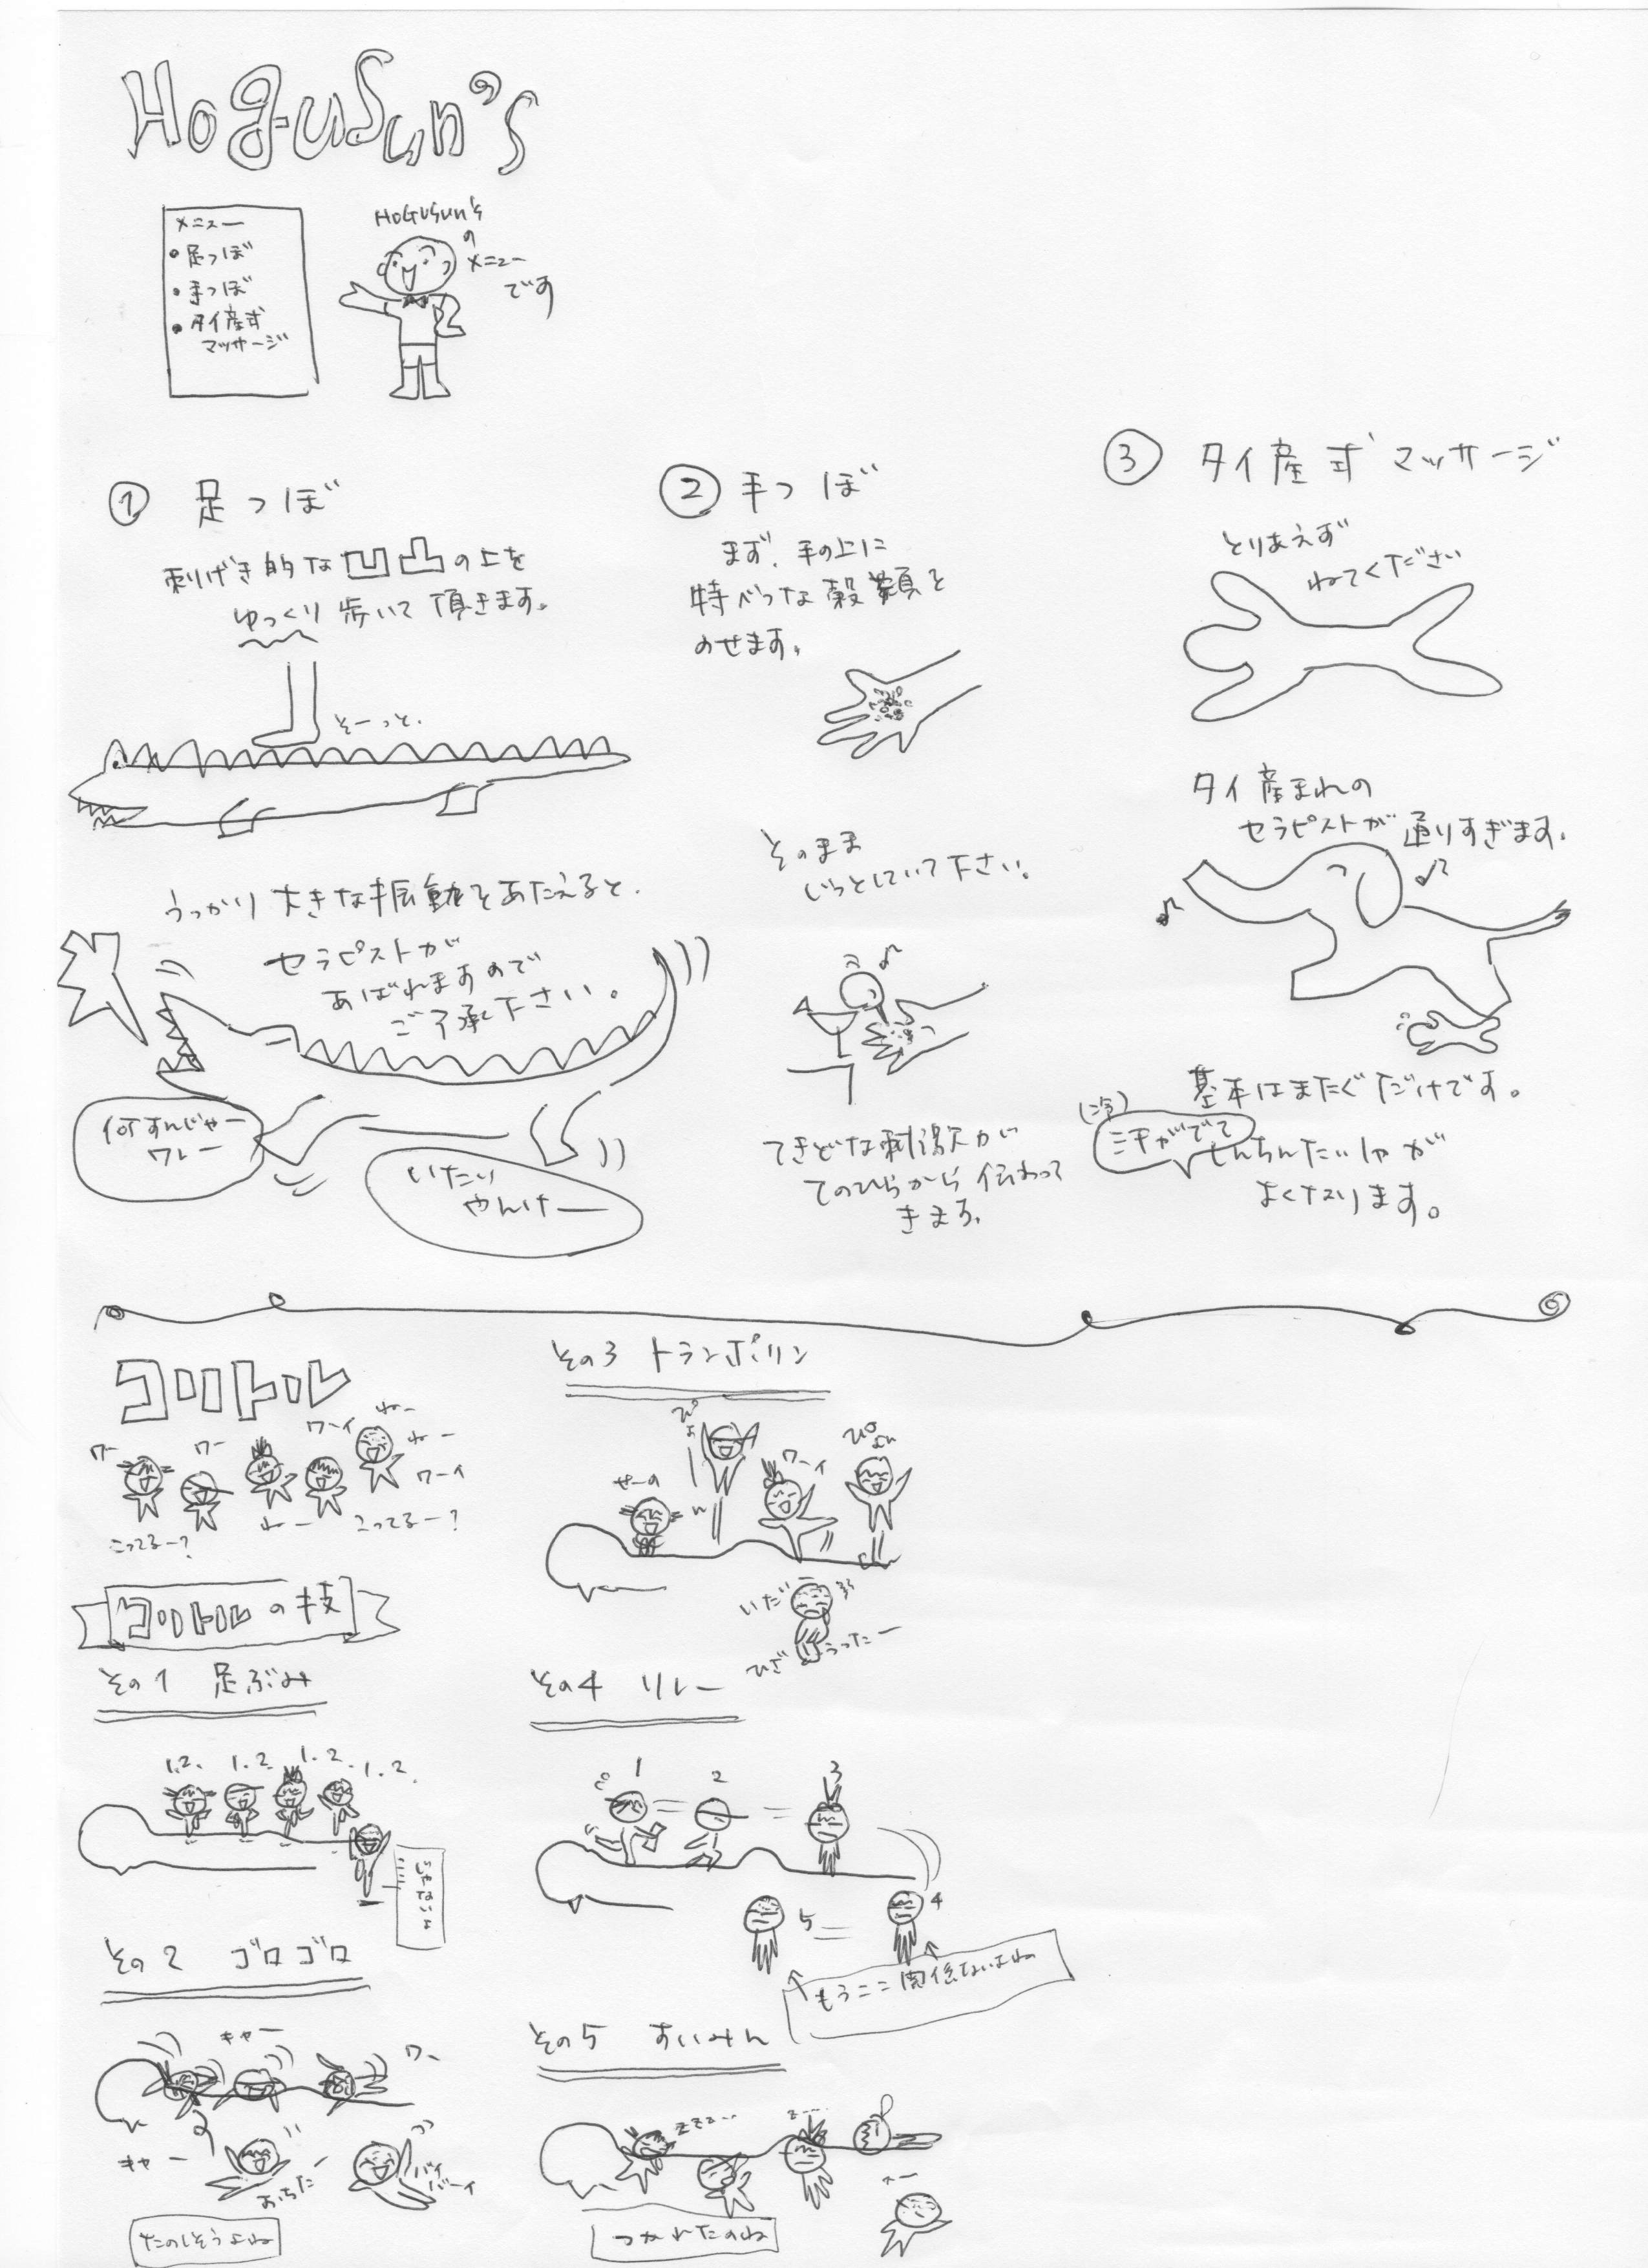 HoguSun's
メニュー
・足つぼ
・手つぼ
・タイ産式
マッサージ
HoGuSun's
の
メニュー
です
① 足つぼ
刺げき的な凹凸の上を
ゆっくり歩いて頂きます。
そーっと、
うっかり大きな振動をあたえると、
セラピストが
あばれますので
ご了承下さい。
何すんじゃー
ワレー
いたい
やんけー
② 手つぼ
まず、手の上に
特べつな穀類を
のせます。
そのまま
じっとしていて下さい。
てきどな刺激が
てのひらから伝わって
きます。
③ タイ産式マッサージ
とりあえず
ねてください
タイ産まれの
セラピストが通りすぎます。
基本はまたぐだけです。
(冷)
汗がでて
しんちんたいしゃが
よくなります。
コリトル
ワー
ワー
ワーイ
わー
わー
ワーイ
こってるー?
わー
こってるー?
コリトルの技
その1 足ぶみ
1.2.
1.2.
1.2.
1.2.
じゃないよ
その2 ゴロゴロ
キャー
ワー
キャー
おちたー
バイ
バーイ
たのしそうよね
その3 トランポリン
せーの
ワーイ
ぴょーん
いだい
ひざ うったー
その4 リレー
1
2
3
4
5
もうここ関係ないよね
その5 すいみん
zzz...
z...
つかれたのね